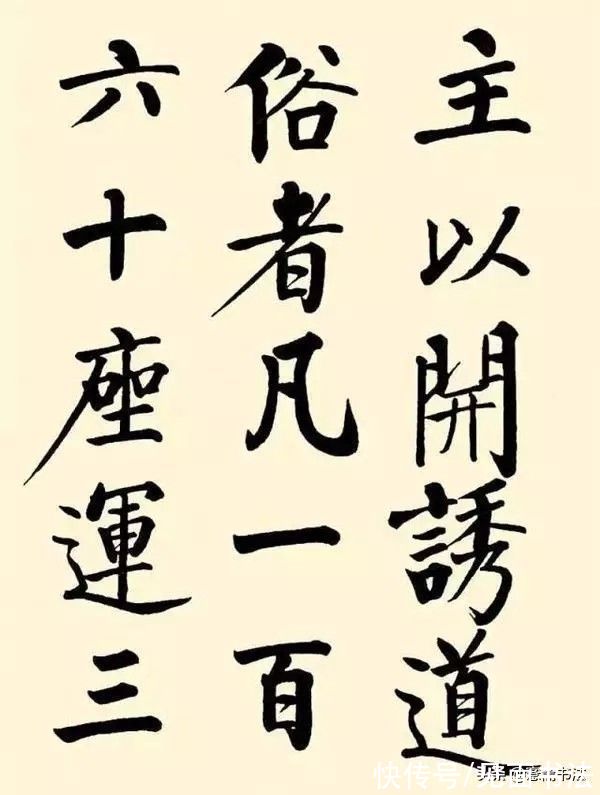 主以開誘道
俗者凡一百
六十座運三
快传号/